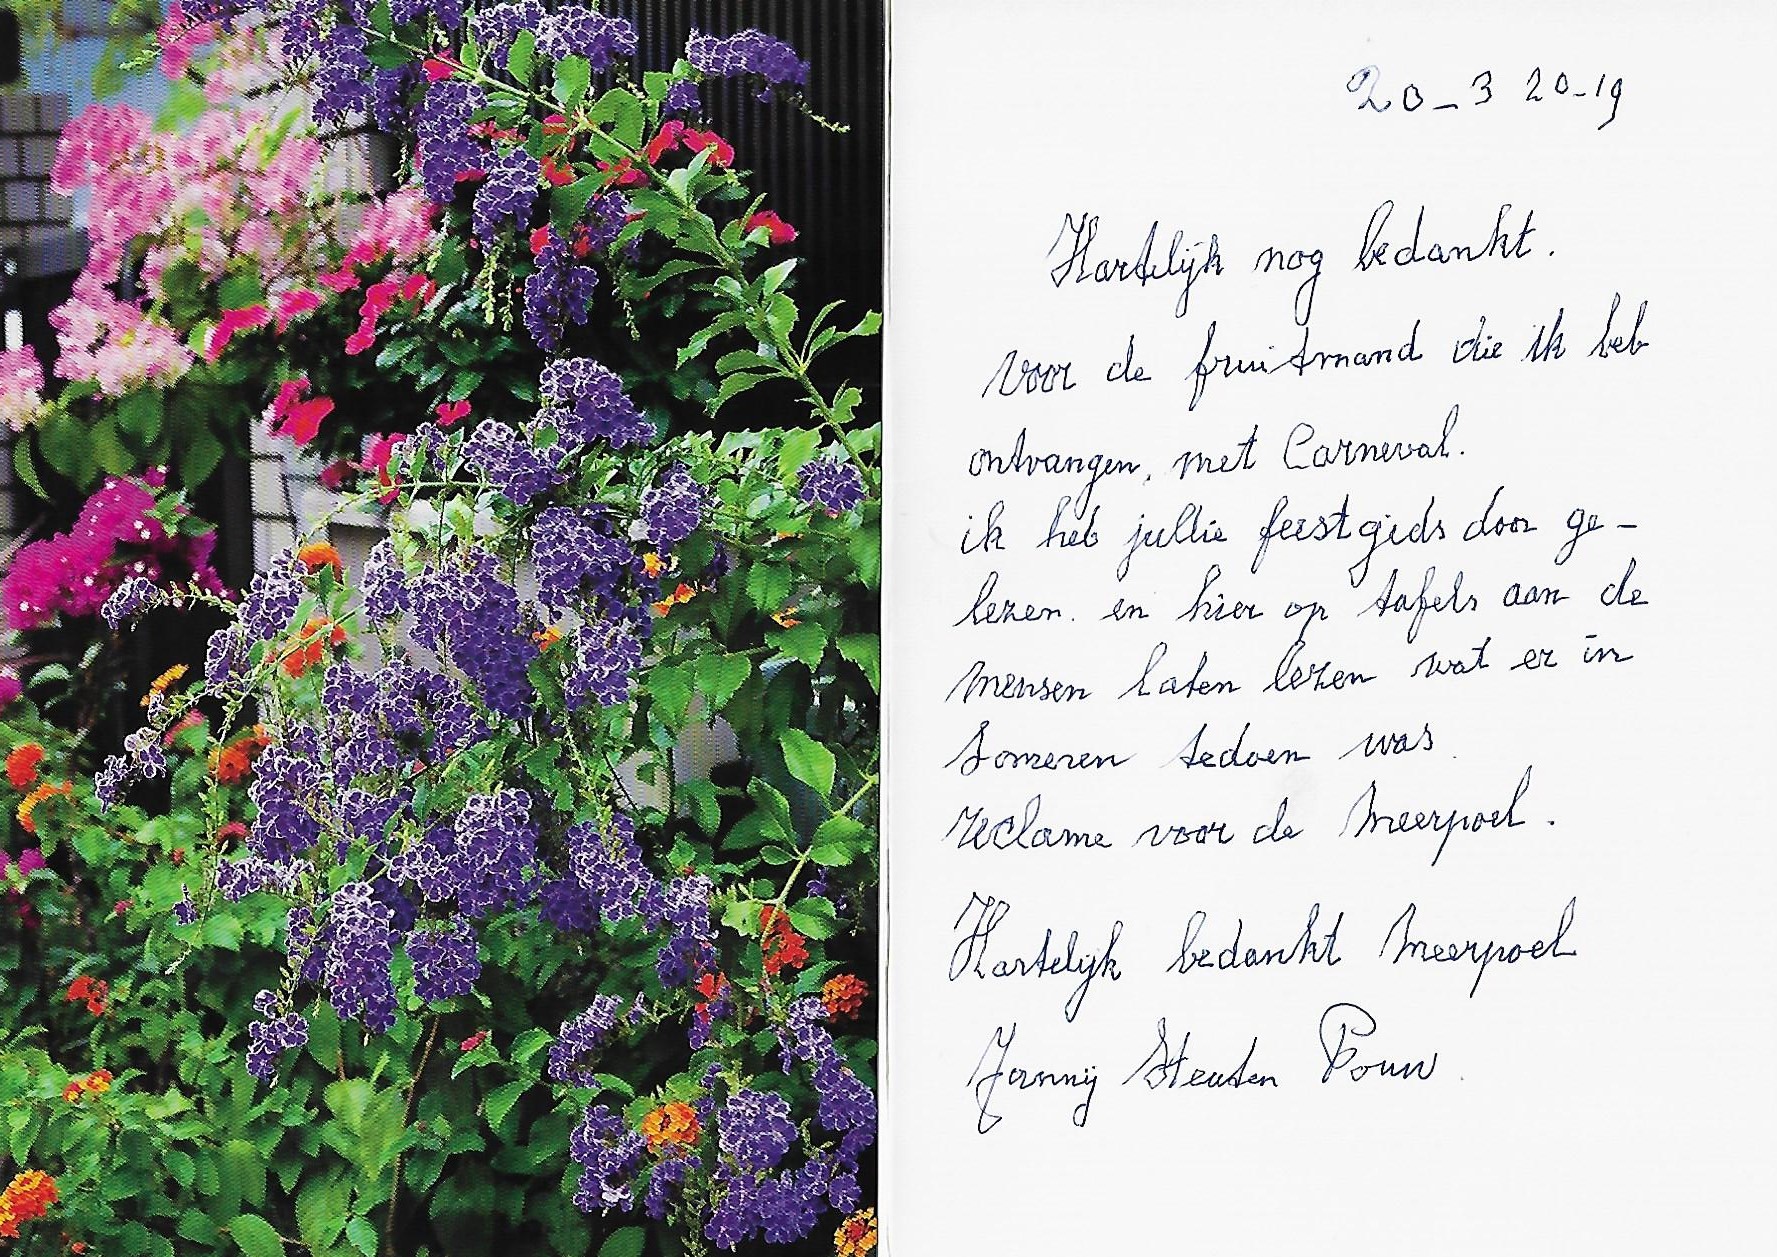 20-3 20-19
Hartelijk nog bedankt.
voor de fruitmand die ik heb
ontvangen, met Carneval.
ik heb jullie feestgids door ge-
lezen. en hier op tafels aan de
mensen laten lezen wat er in
Someren tedoen was.
reclame voor de Meerpoel.
Hartelijk bedankt Meerpoel